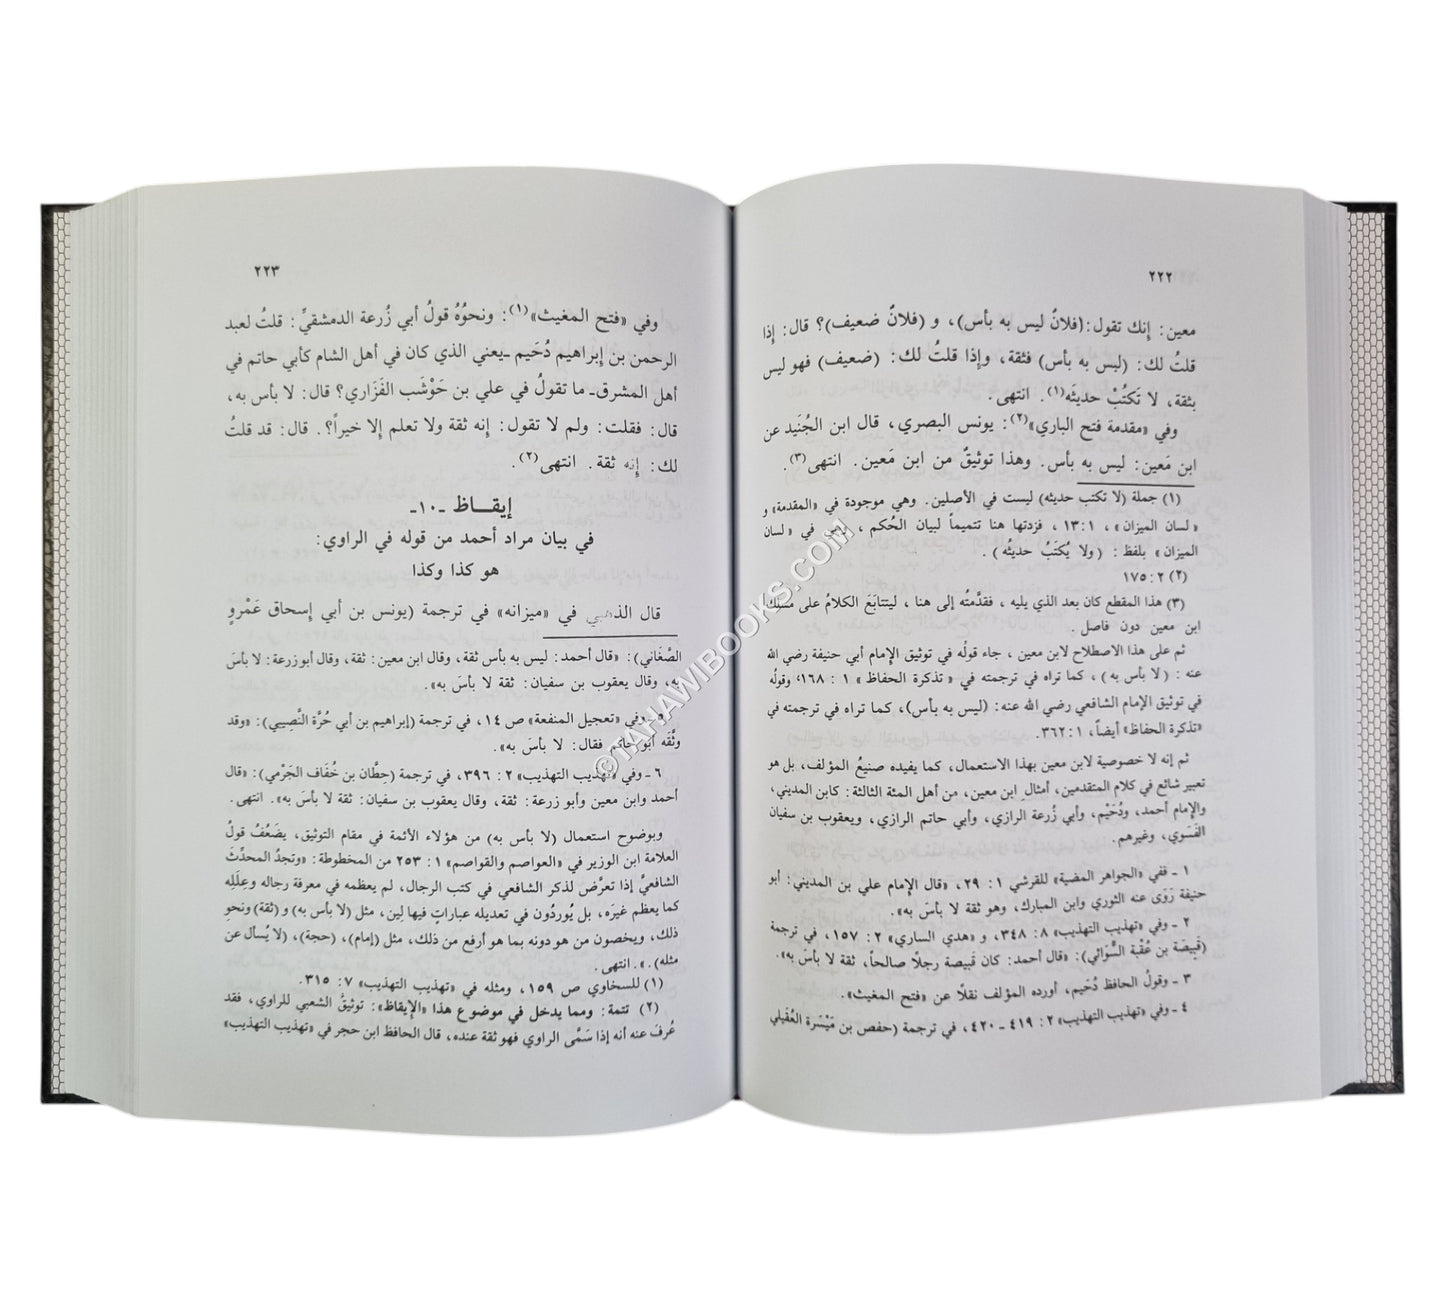 ٢٢٢
معين: إنك تقول: (فلانٌ ليس به بأس)، و (فلانٌ ضعيف)؟ قال: إذا
قلتُ لك: (ليس به بأس) فثقة، وإذا قلتُ لك: (ضعيف) فهو ليس
بثقة، لا تَكتُبْ حديثَه(١). انتهى.
وفي «مقدمة فتح الباري»(٢): يونس البصري، قال ابن الجُنَيد عن
ابن مَعين: ليس به بأس. وهذا توثيقٌ من ابن مَعين. انتهى(٣).
(١) جملة (لا تكتب حديثه) ليست في الأصلين. وهي موجودة في «المقدمة» و
«لسان الميزان» ، ١ : ١٣، فزدتها هنا تتميماً لبيان الحُكم ، في «لسان
الميزان» بلفظ: (ولا يُكتَبُ حديثُه) .
(٢) ٢ : ١٧٥
(٣) هذا المقطع كان بعد الذي يليه ، فقدَّمتُه إلى هنا ، ليتتابَعَ الكلامُ على مسلك
ابن معين دون فاصل .
ثم على هذا الاصطلاح لابن معين ، جاء قولُه في توثيق الإمام أبي حنيفة رضي الله
عنه : (لا بأس به) ، كما تراه في ترجمته في «تذكرة الحفاظ» ١ : ١٦٨، وقولُه
في توثيق الإمام الشافعي رضي الله عنه: (ليس به بأس)، كما تراه في ترجمته في
«تذكرة الحفاظ» أيضاً، ١ : ٣٦٢.
ثم إنه لا خصوصية لابن معين بهذا الاستعمال، كما يفيده صنيعُ المؤلف، بل هو
تعبير شائع في كلام المتقدمين، أمثالِ ابن معين، من أهل المئة الثالثة: كابن المديني،
والإمام أحمد، ودُحَيْم، وأبي زُرعة الرازي، وأبي حاتم الرازي، ويعقوب بن سفيان
الفَسَوي، وغيرهم.
١ - ففي «الجواهر المضية» للقرشي ١ : ٢٩، «قال الإمام علي بن المديني: أبو
حنيفة رَوَى عنه الثوري وابن المبارك، وهو ثقة لا بأسَ به».
٢ - وفي «تهذيب التهذيب» ٨ : ٣٤٨، و «هدي الساري» ٢ : ١٥٧، في ترجمة
(قَبِيصَة بن عُقْبة السُّوَائي): «قال أحمد: كان قَبيصة رجلاً صالحاً، ثقة لا بأسَ به».
٣ - وقولُ الحافظ دُحَيم، أورده المؤلف نقلاً عن «فتح المغيث».
٤ - وفي «تهذيب التهذيب» ٢ : ٤١٩ - ٤٢٠، في ترجمة (حفص بن مَيْسَرة العُقَيلي
٢٢٣
وفي «فتح المغيث»(١): ونحوُهُ قولُ أبي زُرعة الدمشقيِّ: قلتُ لعبد
الرحمن بن إبراهيم دُحَيم ـ يعني الذي كان في أهل الشام كأبي حاتم في
أهل المشرق ـ ما تقولُ في علي بن حَوْشَب الفَزَاري؟ قال: لا بأس به،
قال: فقلت: ولم لا تقول: إنه ثقة ولا تعلم إلا خيراً؟. قال: قد قلتُ
لك: إنه ثقة. انتهى(٢).
إيقــاظ ـ١٠ـ
في بيان مراد أحمد من قوله في الراوي:
هو كذا وكذا
قال الذهبي في «ميزانه» في ترجمة (يونس بن أبي إسحاق عَمْروٍ
الصَّغَاني): «قال أحمد: ليس به بأس ثقة، وقال ابن معين: ثقة، وقال أبوزرعة: لا بأسَ
به، وقال يعقوب بن سفيان: ثقة لا بأسَ به».
وفي «تعجيل المنفعة» ص ١٤، في ترجمة (إبراهيم بن أبي حُرَّة النَّصِيبي): «وقد
وثَّقَه أبو حاتم فقال: لا بأسَ به».
٦ - وفي «تهذيب التهذيب» ٢ : ٣٩٦، في ترجمة (حِطَّان بن خُفَاف الجَرْمي): «قال
أحمد وابن معين وأبو زرعة: ثقة، وقال يعقوب بن سفيان: ثقة لا بأسَ به». انتهى.
وبوضوح استعمال (لا بأس به) من هؤلاء الأئمة في مقام التوثيق، يضَعُفُ قولُ
العلامة ابن الوزير في «العواصم والقواصم» ١ : ٢٥٣ من المخطوطة: «وتجدُ المحدِّثَ
الشافعيَّ إذا تعرَّض لذكر الشافعي في كتب الرجال، لم يعظمه في معرفة رجاله وعِلَلِه
كما يعظم غيرَه، بل يُوردُون في تعديله عباراتٍ فيها لِين، مثل (لا بأس به) و (ثقة) ونحوِ
ذلك، ويخصون من هو دونه بما هو أرفع من ذلك، مثل (إمام)، (حجة)، (لا يُسأل عن
مثله).». انتهى.
(١) للسخاوي ص ١٥٩، ومثله في «تهذيب التهذيب» ٧ : ٣١٥.
(٢) تتمة: ومما يدخل في موضوع هذا «الإيقاظ»: توثيقُ الشعبي للراوي، فقد
عُرفَ عنه أنه إذا سَمَّى الراوي فهو ثقة عنده، قال الحافظ ابن حجر في «تهذيب التهذيب»
©TAHAWIBOOKS.COM